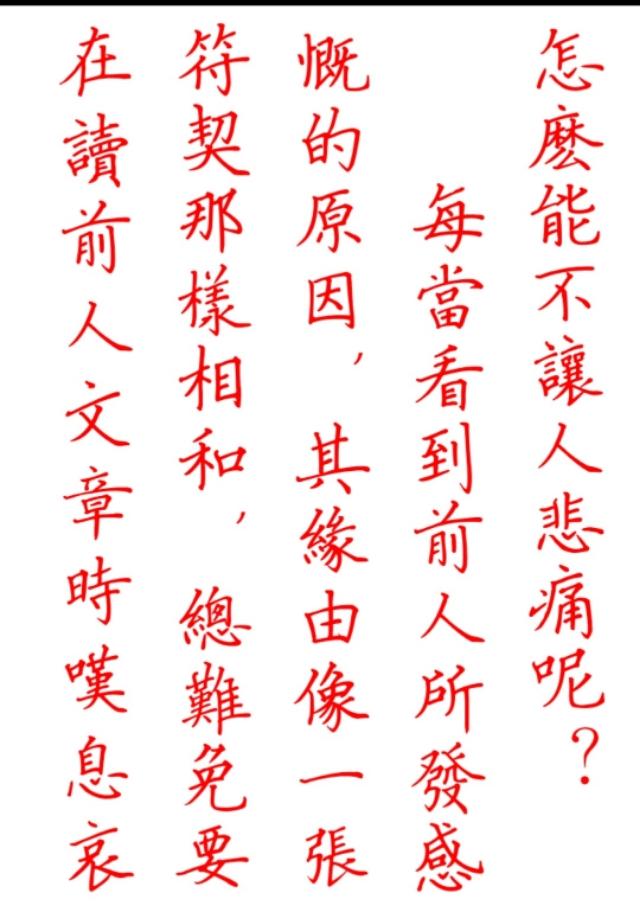 怎麽能不讓人悲痛呢？
每當看到前人所發感
慨的原因，其緣由像一張
符契那樣相和，總難免要
在讀前人文章時嘆息哀